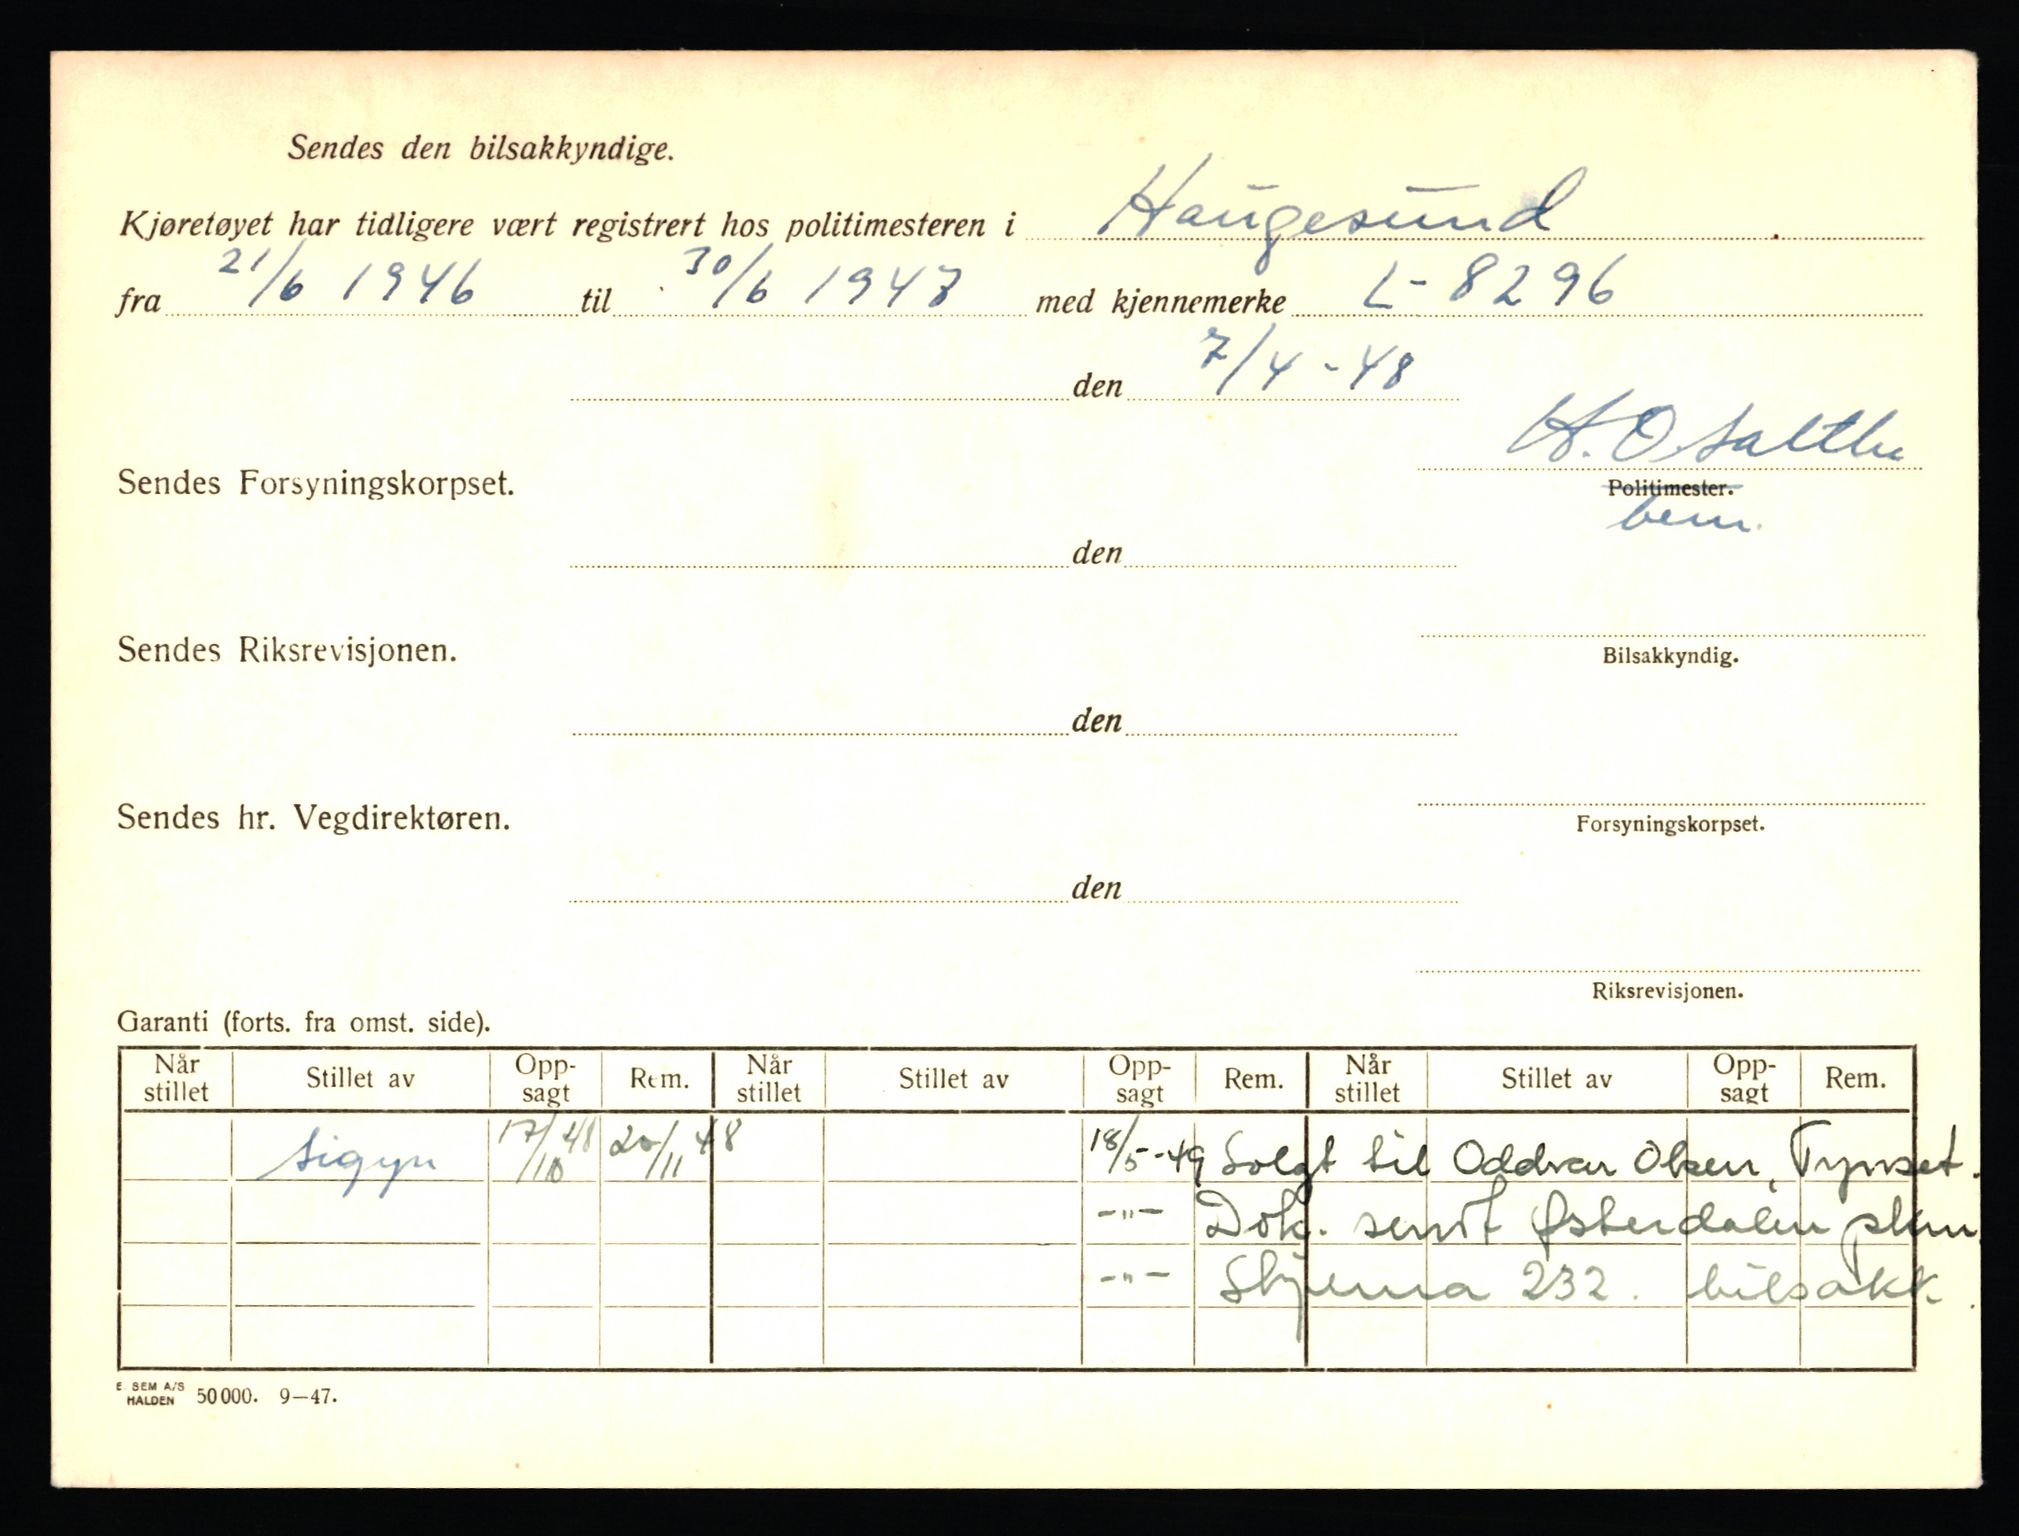 Sendes den bilsakkyndige.
Kjøretøyet har tidligere vært registrert hos politimesteren i Haugesund
fra 21/6 1946 til 30/6 1947 med kjennemerke L-8296
den 7/4-48
H. O
Sendes Forsyningskorpset.
Politimester.
bem.
den
Sendes Riksrevisjonen.
Bilsakkyndig.
den
Sendes hr. Vegdirektøren.
Forsyningskorpset.
den
Riksrevisjonen.
Garanti (forts. fra omst. side).
Når stillet Stillet av Opp-sagt Rem. Når stillet Stillet av Opp-sagt Rem. Når stillet Stillet av Opp-sagt Rem.
Sigyn 17/10 48 20/11 48 18/5-49 Solgt til Oddvar Olsen, Tynset.
-"- Dok. sendt Østerdalen pkm.
-"- Skjema 232. bilsakk.
E. SEM A/S HALDEN 50 000. 9—47.